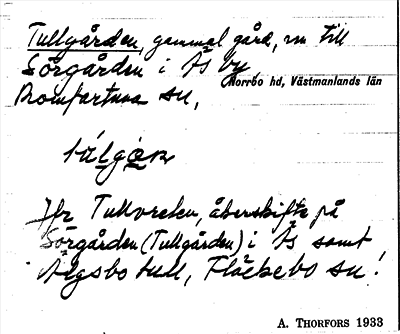 Tullgården, gammal gård, nu till
Sörgården i Ås by
Norrbo hd, Västmanlands län
Romfartuna sn,
Jfr Tullvreten, åkerskifte på
Sörgården (Tullgården) i Ås samt
Älgsbo tull, Fläckebo sn!
A. THORFORS 1933